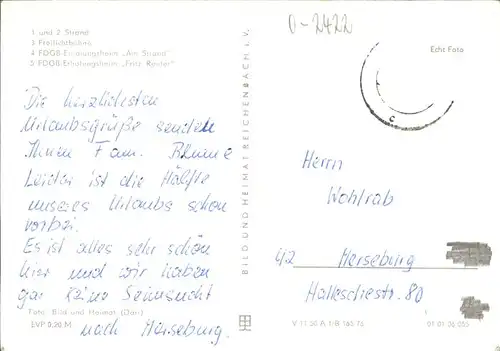 0-2422
1 und 2 Strand
3 Freilichtbühne
4 FDGB-Erholungsheim „Am Strand"
5 FDGB-Erholungsheim „Fritz Reuter"
Echt Foto
Die herzlichsten
Urlaubsgrüße senden
Ihnen Fam. Blume
Leider ist die Hälfte
unseres Urlaubs schon
vorbei.
Es ist alles sehr schön
hier und wir haben
gar keine Sehnsucht
nach Merseburg.
Foto: Bild und Heimat
EVP 0,20 M
BILD UND HEIMAT REICHENBACH i. V.
Herrn
Wohlrab
42 Merseburg
Halleschestr. 80
V 11 50 A 1/B
01 01